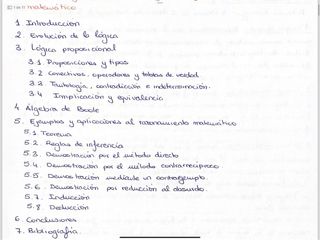 matemático
1. Introducción
2. Evolución de la lógica
3. Lógica proposicional
3.1. Proposiciones y tipos
3.2 Conectivas, operadores y tablas de verdad.
3.3. Tautología, contradicción e indeterminación.
3.4 Implicación y equivalencia
4 Álgebra de Boole
5. Ejemplos y aplicaciones al razonamiento matemático
5.1 Teorema
5.2. Reglas de inferencia
5.3. Demostración por el método directo
5.4. Demostración por el método contrarrecíproco
5.5. Demostración mediante un contraejemplo.
5.6. Demostración por reducción al absurdo.
5.7. Inducción
5.8 Deducción
6. Conclusiones
7. Bibliografía.